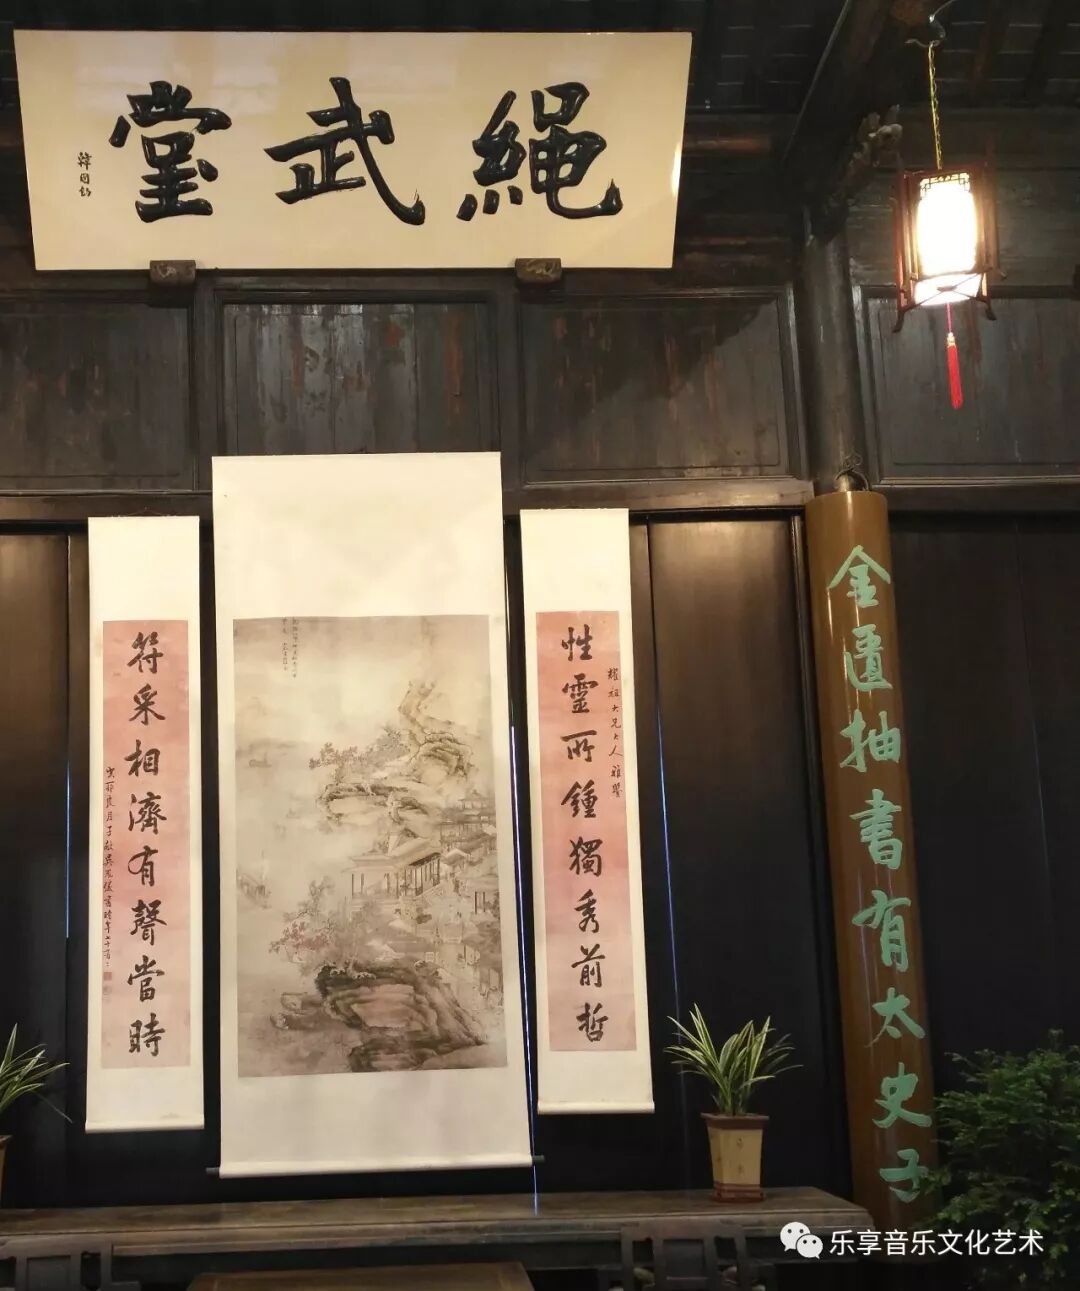 繩武堂
性靈所鍾獨秀前哲
耀祖大兄大人雅墨
符采相濟有聲當時
金匱抽書有太史子
乐享音乐文化艺术